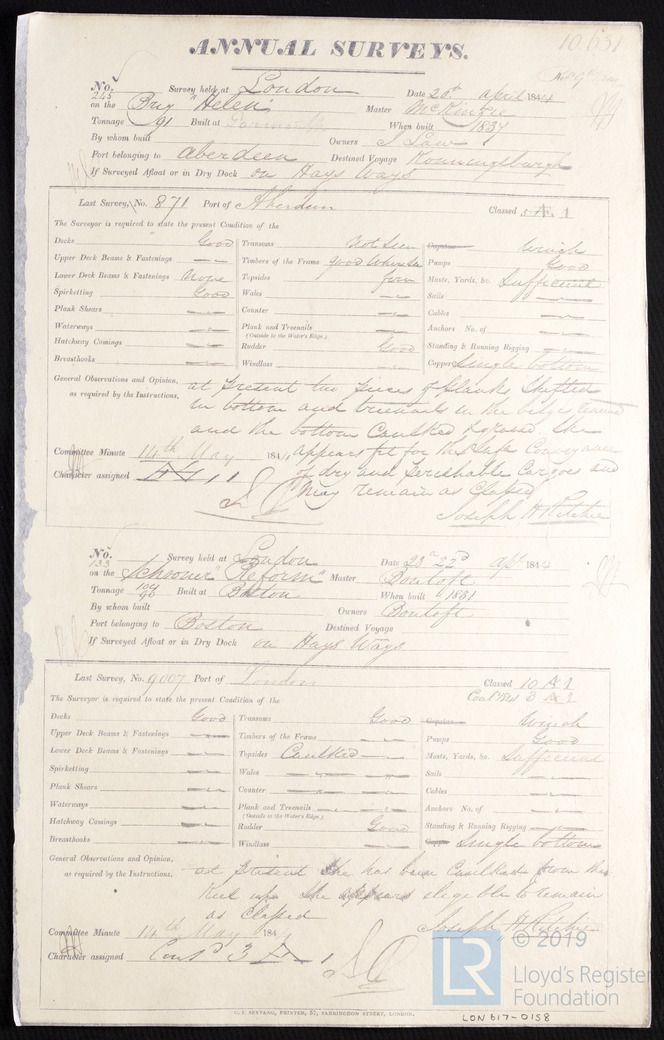 10631
ANNUAL SURVEYS.
No. 245 Survey held at London Date 20th April 1844
on the Brig "Helen" Master McKinzie
Tonnage 91 Built at When built 1837
By whom built Owners J Law
Port belonging to Aberdeen Destined Voyage
If Surveyed Afloat or in Dry Dock on Hays Ways
Last Survey, No. 871 Port of Aberdeen Classed 5 Æ 1
The Surveyor is required to state the present Condition of the
Decks Good Transoms Not Seen Capstan Winch
Upper Deck Beams & Fastenings Timbers of the Frame good where seen Pumps Good
Lower Deck Beams & Fastenings None Topsides firm Masts, Yards, &c. Sufficient
Spirketting Good Wales Sails
Plank Shears Counter Cables
Waterways Plank and Treenails Anchors No. of
(Outside to the Water's Edge.)
Hatchway Comings Rudder Good Standing & Running Rigging
Breasthooks Windlass Copper Single bottom
General Observations and Opinion, at present two pieces of Planks Shifted
as required by the Instructions, in bottom and treenails in the bilge
and the bottom Caulked She
Committee Minute 14th May 1844 appears fit for the Safe Conveyance
Character assigned Æ 1 of dry and Perishable Cargoes and
may remain as Classed
Joseph H Ritchie
No. 133 Survey held at London Date 23d 22d Apl 1844
on the Schooner "Reform" Master Bontoft
Tonnage Built at Boston When built 1831
By whom built Owners Bontoft
Port belonging to Boston Destined Voyage
If Surveyed Afloat or in Dry Dock on Hays Ways
Last Survey, No. 9007 Port of London Classed 10 Æ 1
The Surveyor is required to state the present Condition of the Cont'd 3 Æ 1
Decks Good Transoms Good Capstan Winch
Upper Deck Beams & Fastenings Timbers of the Frame Pumps Good
Lower Deck Beams & Fastenings Topsides Caulked Masts, Yards, &c. Sufficient
Spirketting Wales Sails
Plank Shears Counter Cables
Waterways Plank and Treenails Anchors No. of
(Outside to the Water's Edge.)
Hatchway Comings Rudder Good Standing & Running Rigging
Breasthooks Windlass Single bottom
General Observations and Opinion, at present She has been Caulked from the
as required by the Instructions, Keel up She appears eligible to remain
as Classed
Committee Minute 14th May 184 Joseph H Ritchie
Character assigned Cont'd 3 Æ 1
LR © 2019
Lloyd's Register
Foundation
C. F. SEYFANG, PRINTER, 57, FARRINGDON STREET, LONDON.
LON 617-0158